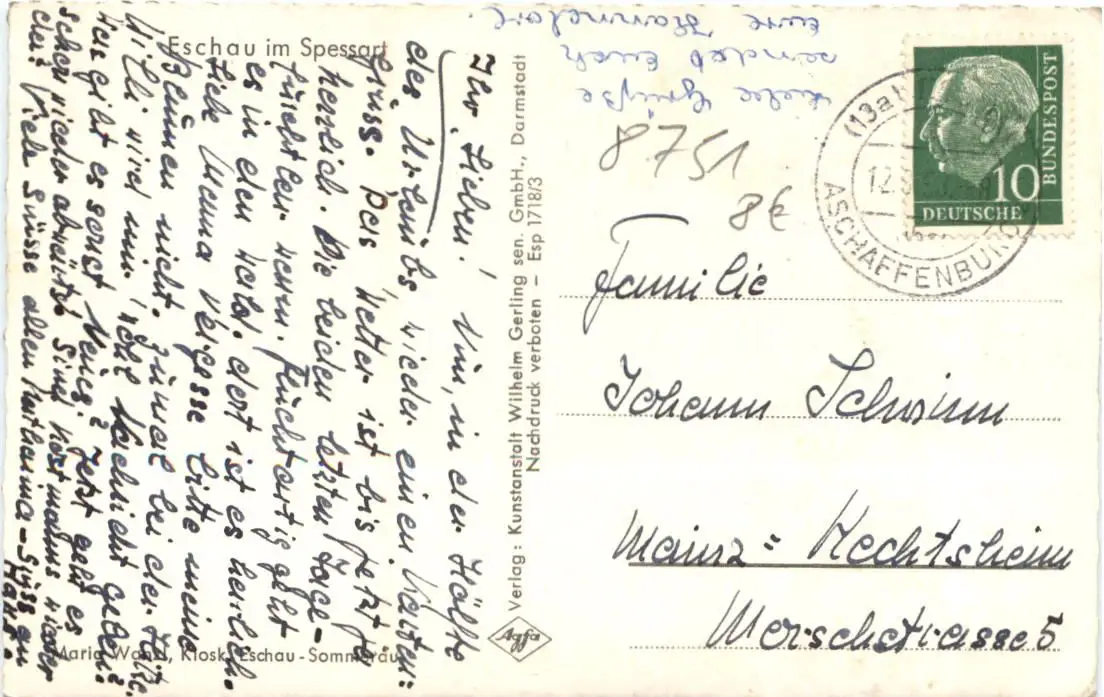 Eschau im Spessart
Ihr Lieben! Nun, in der Hälfte
des Urlaubs, wieder einen Karten:
gruss. Das Wetter ist bis jetzt ja
herrlich. Die beiden letzten Tage
fürchterl. warm. Fluchtartig geht
es in den Wald. dort ist es herrlich.
Liebe Mema vergesse bitte meine
Blumen nicht. zumal bei der Hitze.
Willi wird mir wohl Nachricht geben.
Was gibt es sonst Neues? Jetzt geht es
schon wieder abwärts. Sind wieder
da? Viele Grüsse allen
Hans.
Maria Wandl, Kiosk, Eschau-Sommerau
Verlag: Kunstanstalt Wilhelm Gerling sen. GmbH., Darmstadt
Nachdruck verboten – Esp 1718/3
Agfa
viele Grüße
sendet Euch
eure Hannelore.
8751
8€
(13a)
12.
ASCHAFFENBURG
10
DEUTSCHE
BUNDESPOST
Familie
Johann Schwinn
Mainz = Hechtsheim
Morschstrasse 5